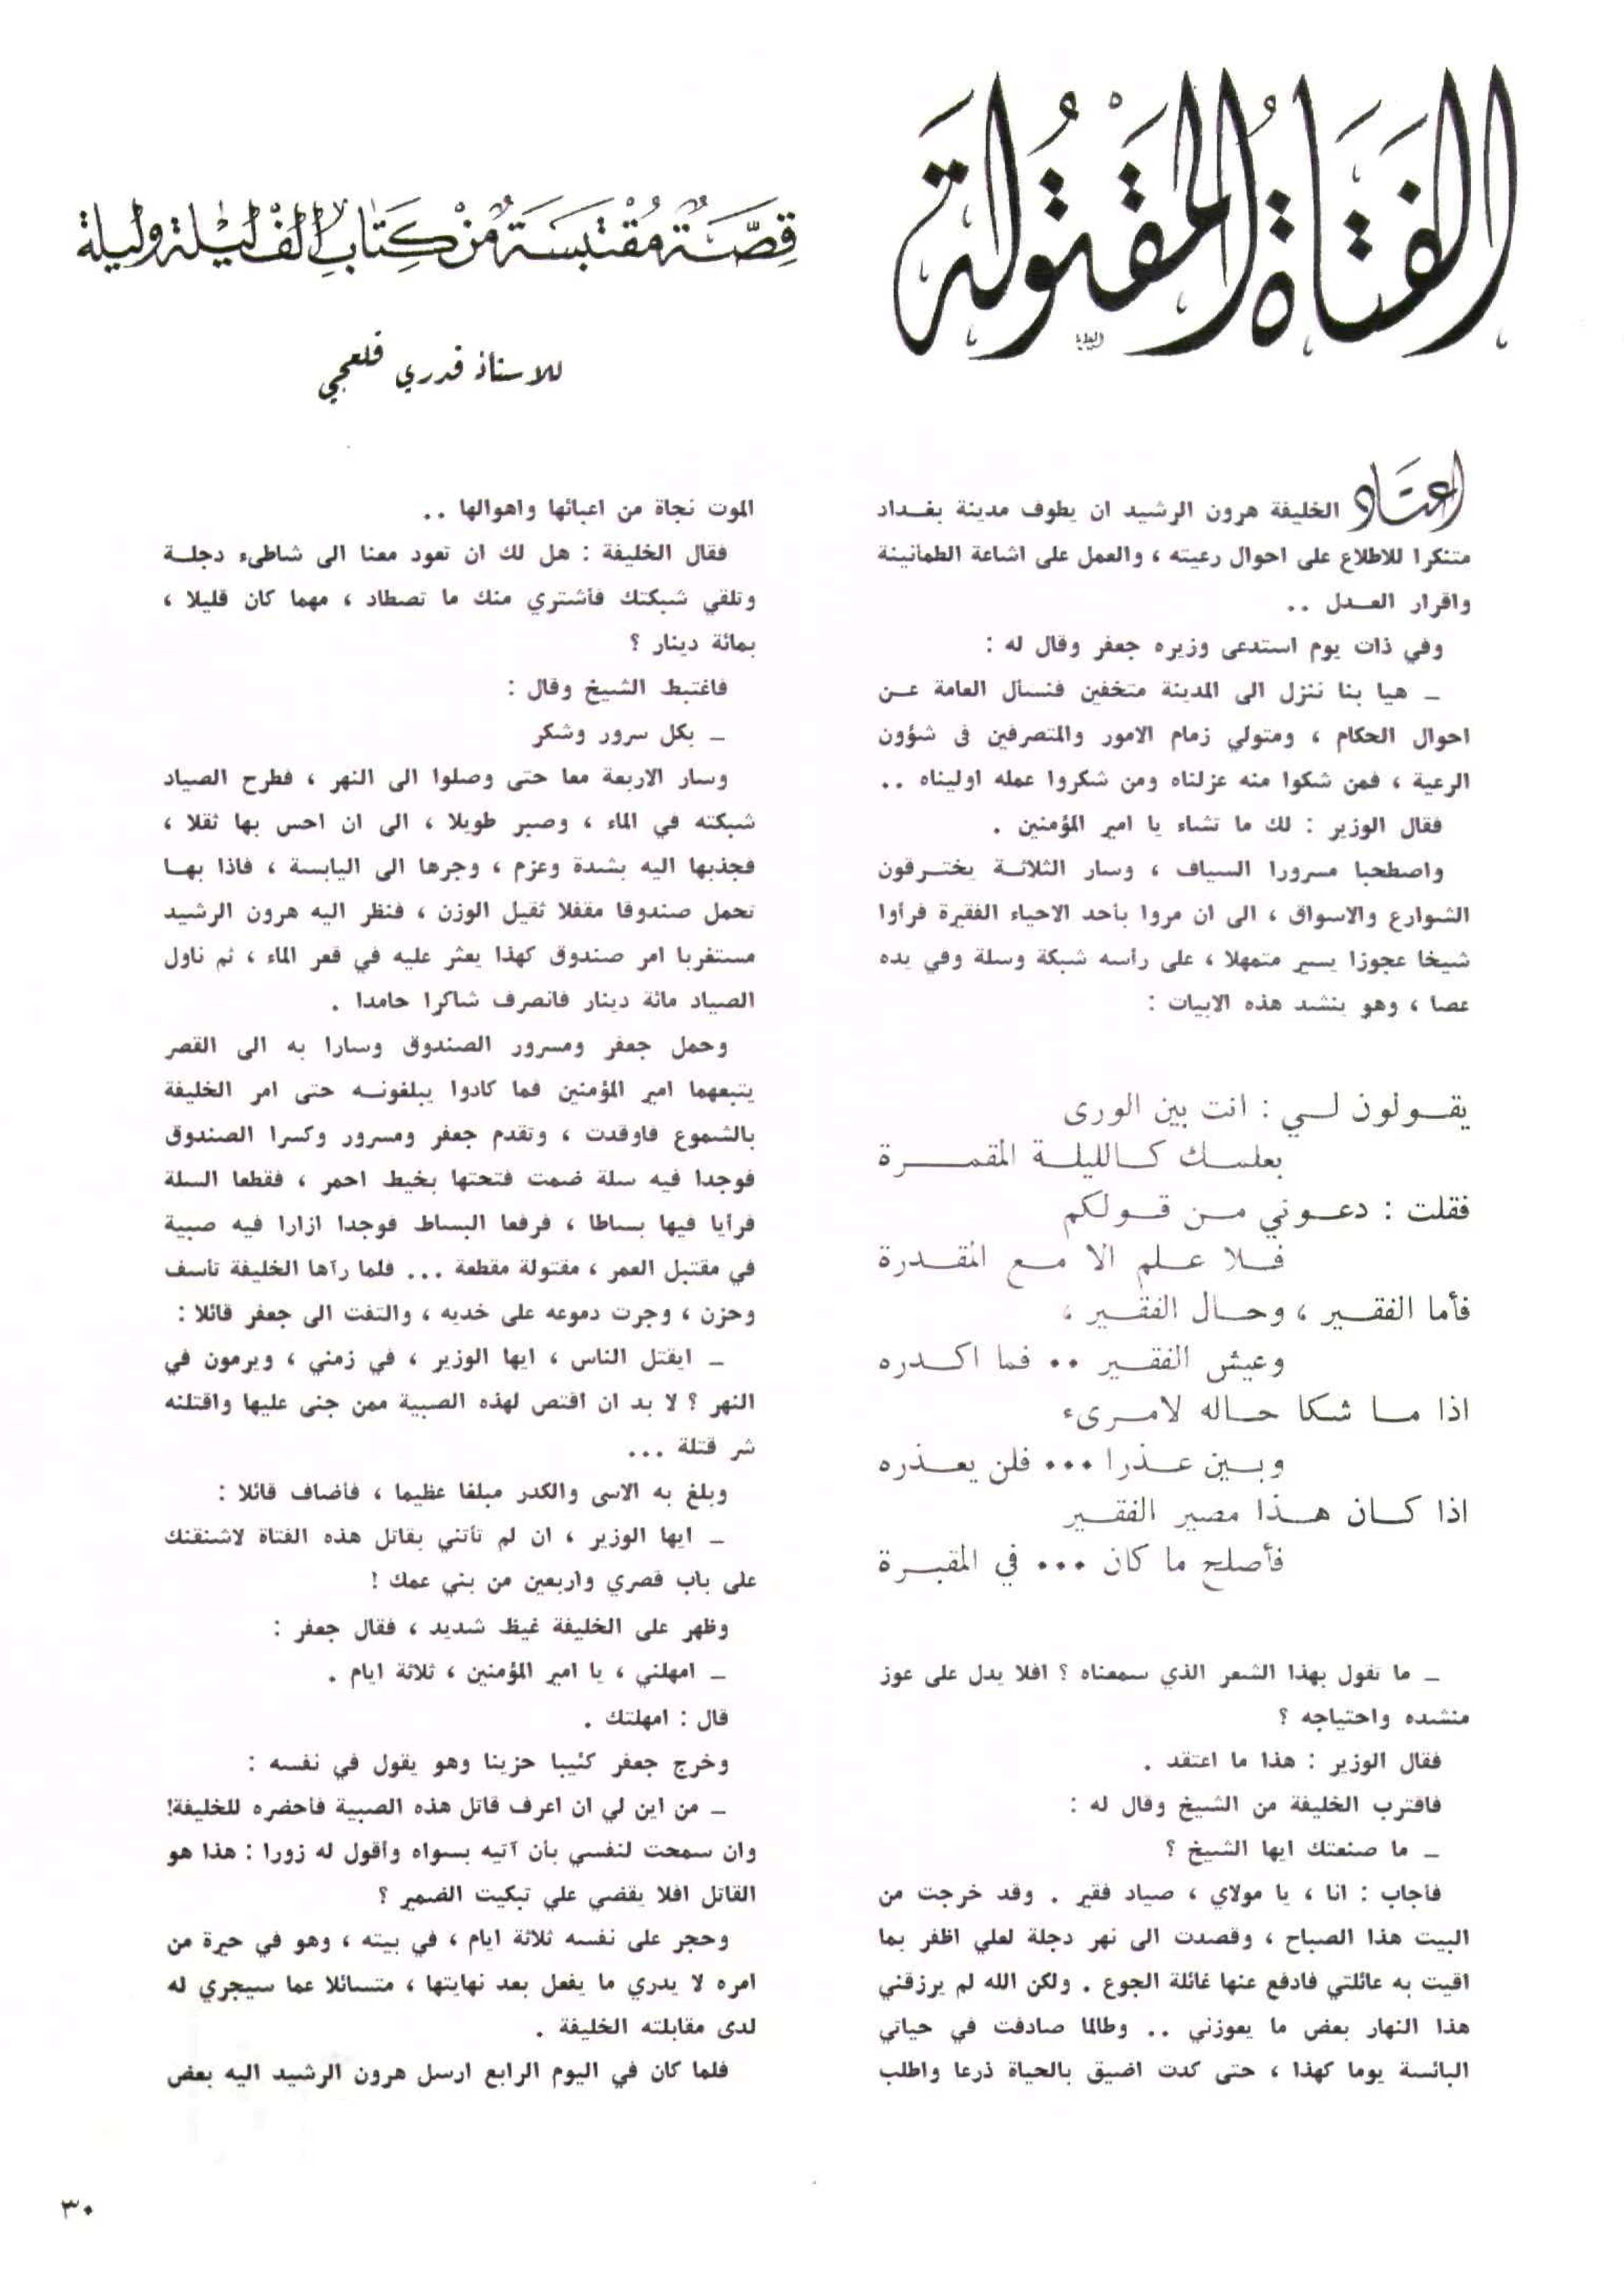 الفَتَاةُ المَقْتُولَة
قِصَّةٌ مُقْتَبَسَةٌ مِنْ كِتَابِ أَلْفِ لَيْلَة وليلة
للاستاذ قدري قلعجي
اعتَاد الخليفة هرون الرشيد ان يطوف مدينة بغداد
متنكرا للاطلاع على احوال رعيته ، والعمل على اشاعة الطمأنينة
واقرار العدل ..
وفي ذات يوم استدعى وزيره جعفر وقال له :
ـ هيا بنا ننزل الى المدينة متخفين فنسأل العامة عن
احوال الحكام ، ومتولي زمام الامور والمتصرفين فى شؤون
الرعية ، فمن شكوا منه عزلناه ومن شكروا عمله اوليناه ..
فقال الوزير : لك ما تشاء يا امير المؤمنين .
واصطحبا مسرورا السياف ، وسار الثلاثة يخترقون
الشوارع والاسواق ، الى ان مروا بأحد الاحياء الفقيرة فرأوا
شيخا عجوزا يسير متمهلا ، على رأسه شبكة وسلة وفي يده
عصا ، وهو ينشد هذه الابيات :
يقولون لي : انت بين الورى
بعلمك كالليلة المقمرة
فقلت : دعوني من قولكم
فلا علم الا مع المقدرة
فأما الفقير ، وحال الفقير ،
وعيش الفقير .. فما اكدره
اذا ما شكا حاله لامرىء
وبين عذرا ... فلن يعذره
اذا كان هذا مصير الفقير
فأصلح ما كان ... في المقبرة
ـ ما تقول بهذا الشعر الذي سمعناه ؟ افلا يدل على عوز
منشده واحتياجه ؟
فقال الوزير : هذا ما اعتقد .
فاقترب الخليفة من الشيخ وقال له :
ـ ما صنعتك ايها الشيخ ؟
فأجاب : انا ، يا مولاي ، صياد فقير . وقد خرجت من
البيت هذا الصباح ، وقصدت الى نهر دجلة لعلي اظفر بما
اقيت به عائلتي فادفع عنها غائلة الجوع . ولكن الله لم يرزقني
هذا النهار بعض ما يعوزني .. وطالما صادفت في حياتي
البائسة يوما كهذا ، حتى كدت اضيق بالحياة ذرعا واطلب
الموت نجاة من اعبائها واهوالها ..
فقال الخليفة : هل لك ان تعود معنا الى شاطىء دجلة
وتلقي شبكتك فأشتري منك ما تصطاد ، مهما كان قليلا ،
بمائة دينار ؟
فاغتبط الشيخ وقال :
ـ بكل سرور وشكر
وسار الاربعة معا حتى وصلوا الى النهر ، فطرح الصياد
شبكته في الماء ، وصبر طويلا ، الى ان احس بها ثقلا ،
فجذبها اليه بشدة وعزم ، وجرها الى اليابسة ، فاذا بها
تحمل صندوقا مقفلا ثقيل الوزن ، فنظر اليه هرون الرشيد
مستغربا امر صندوق كهذا يعثر عليه في قعر الماء ، ثم ناول
الصياد مائة دينار فانصرف شاكرا حامدا .
وحمل جعفر ومسرور الصندوق وسارا به الى القصر
يتبعهما امير المؤمنين فما كادوا يبلغونه حتى امر الخليفة
بالشموع فاوقدت ، وتقدم جعفر ومسرور وكسرا الصندوق
فوجدا فيه سلة ضمت فتحتها بخيط احمر ، فقطعا السلة
فرأيا فيها بساطا ، فرفعا البساط فوجدا ازارا فيه صبية
في مقتبل العمر ، مقتولة مقطعة ... فلما رآها الخليفة تأسف
وحزن ، وجرت دموعه على خديه ، والتفت الى جعفر قائلا :
ـ ايقتل الناس ، ايها الوزير ، في زمني ، ويرمون في
النهر ؟ لا بد ان اقتص لهذه الصبية ممن جنى عليها واقتلنه
شر قتلة ...
وبلغ به الاسى والكدر مبلغا عظيما ، فأضاف قائلا :
ـ ايها الوزير ، ان لم تأتني بقاتل هذه الفتاة لاشنقنك
على باب قصري واربعين من بني عمك !
وظهر على الخليفة غيظ شديد ، فقال جعفر :
ـ امهلني ، يا امير المؤمنين ، ثلاثة ايام .
قال : امهلتك .
وخرج جعفر كئيبا حزينا وهو يقول في نفسه :
ـ من اين لي ان اعرف قاتل هذه الصبية فأحضره للخليفة!
وان سمحت لنفسي بأن آتيه بسواه وأقول له زورا : هذا هو
القاتل افلا يقضي علي تبكيت الضمير ؟
وحجر على نفسه ثلاثة ايام ، في بيته ، وهو في حيرة من
امره لا يدري ما يفعل بعد نهايتها ، متسائلا عما سيجري له
لدى مقابلته الخليفة .
فلما كان في اليوم الرابع ارسل هرون الرشيد اليه بعض
٣٠